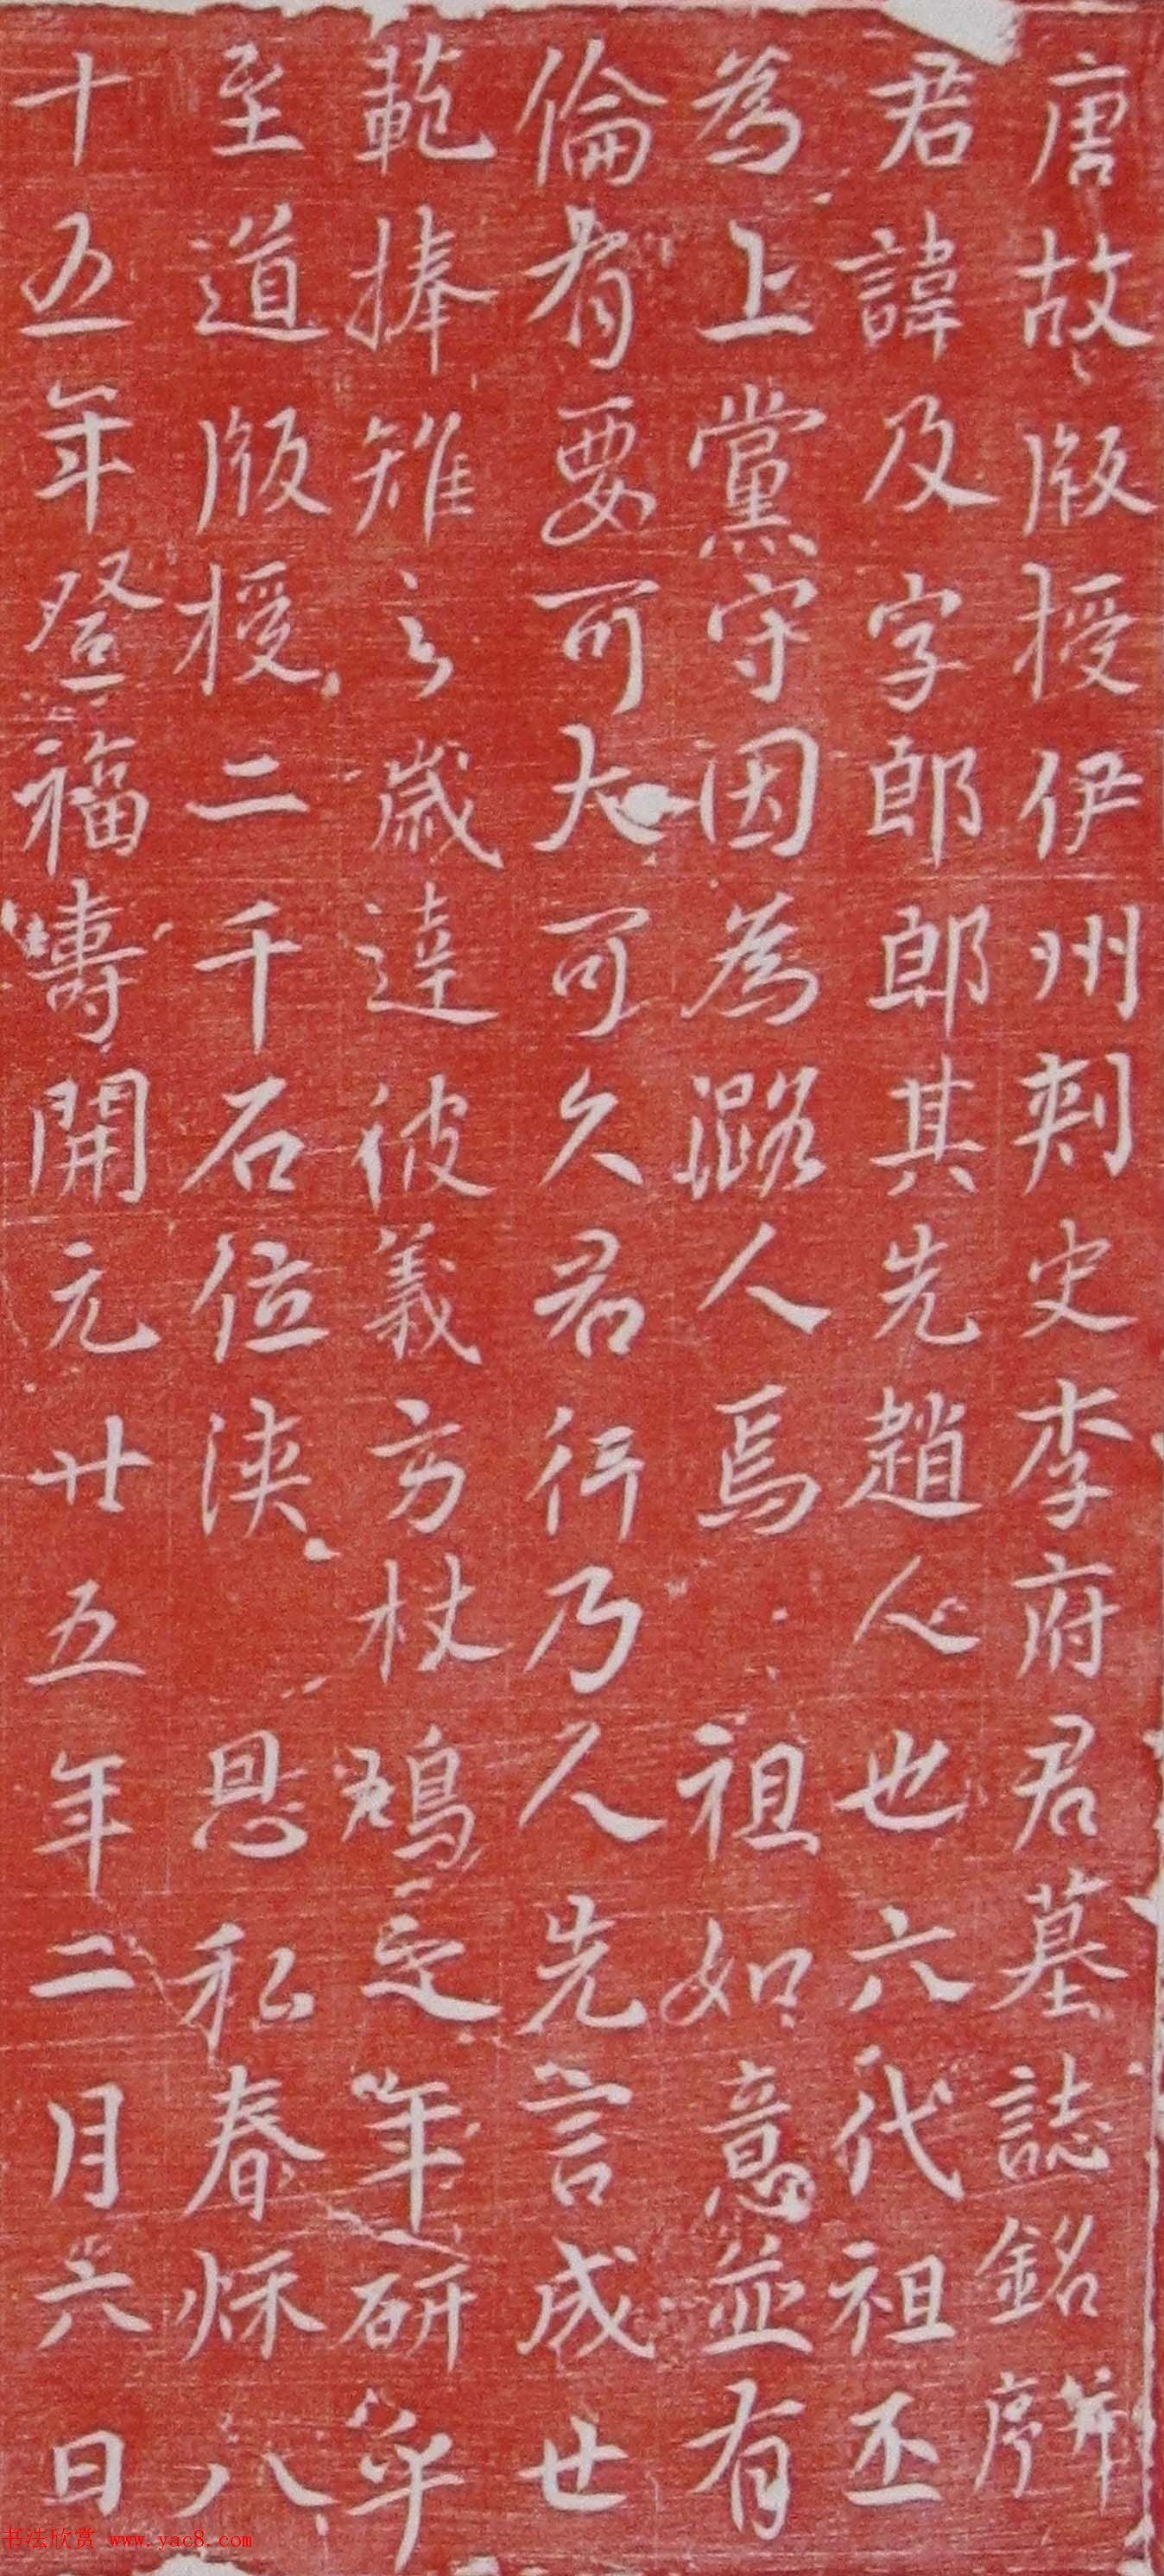 唐故版授伊州刺史李府君墓誌銘并序
君諱及字郎郎其先趙人也六代祖丕
為上黨守因為潞人焉祖如意並有
倫有要可大可久君行乃人先言成世
範捧雉之歲達彼義方杖鳩之年研乎
至道版授二千石位浹恩私春秋八
十五年登福壽開元廿五年二月六日
书法欣赏 www.yac8.com